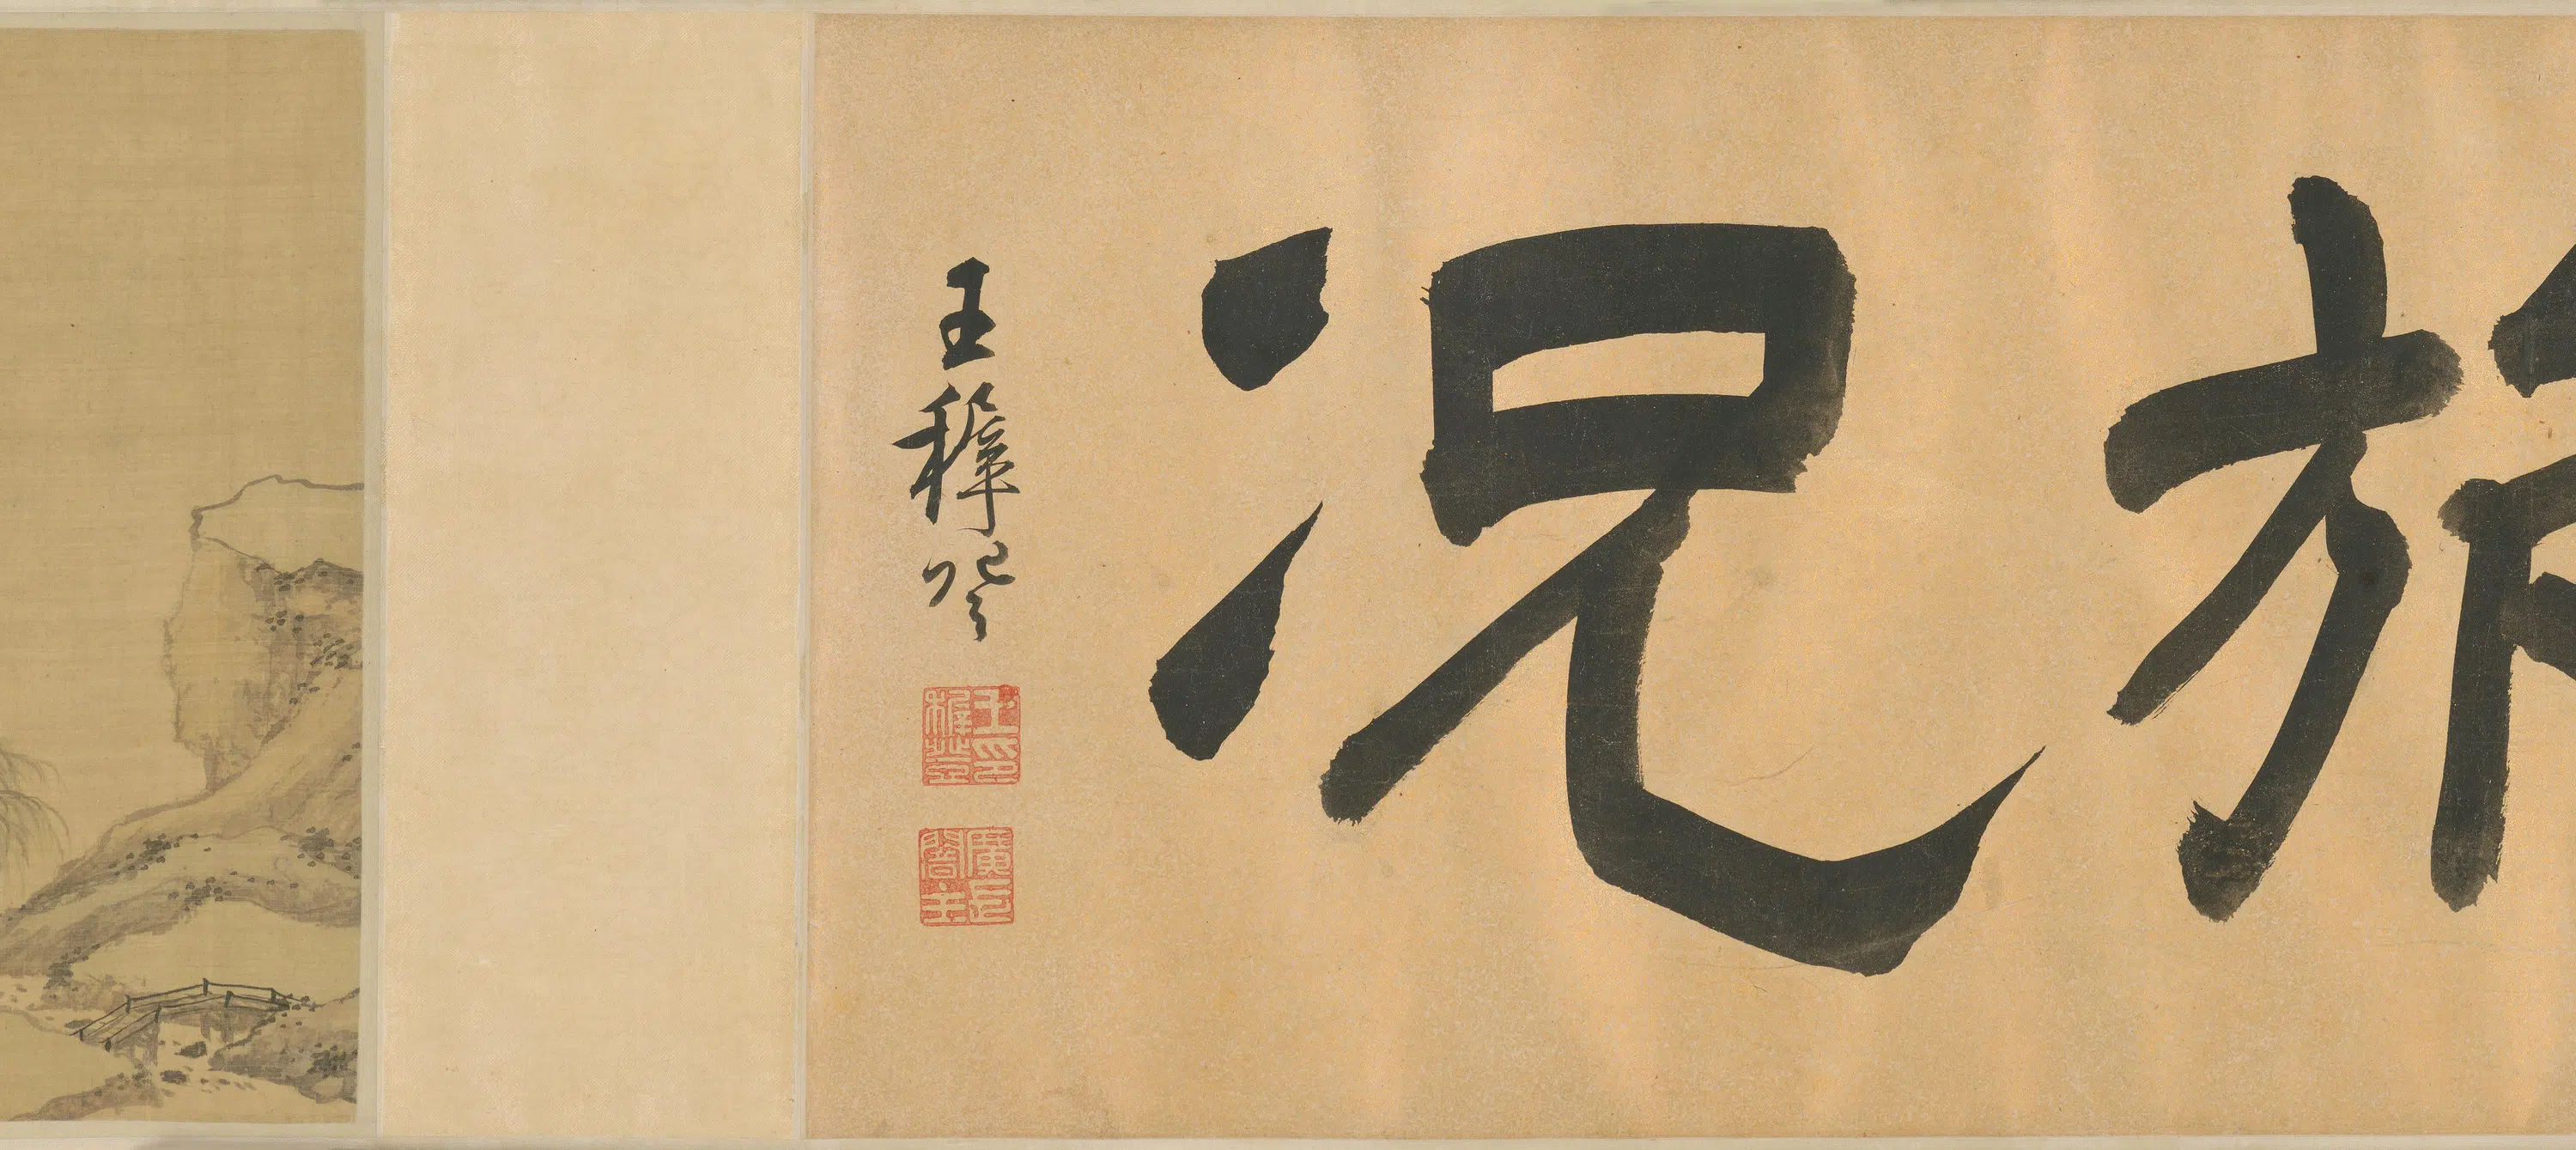 旅况
王穉登
王印穉登
廣長闇主